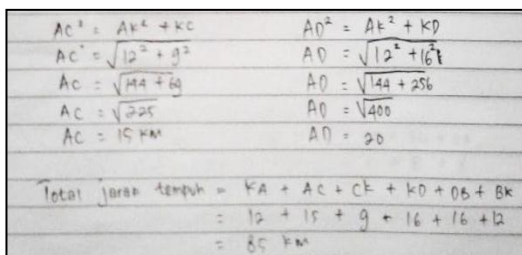 AC² = AK² + KC
AC² = √12² + 9²
AC = √144 + 69
AC = √225
AC = 15 KM
AD² = AK² + KD
AD = √12² + 16²
AD = √144 + 256
AD = √400
AD = 20
Total jarak tempuh = KA + AC + CK + KD + DB + BK
= 12 + 15 + 9 + 16 + 16 + 12
= 85 KM